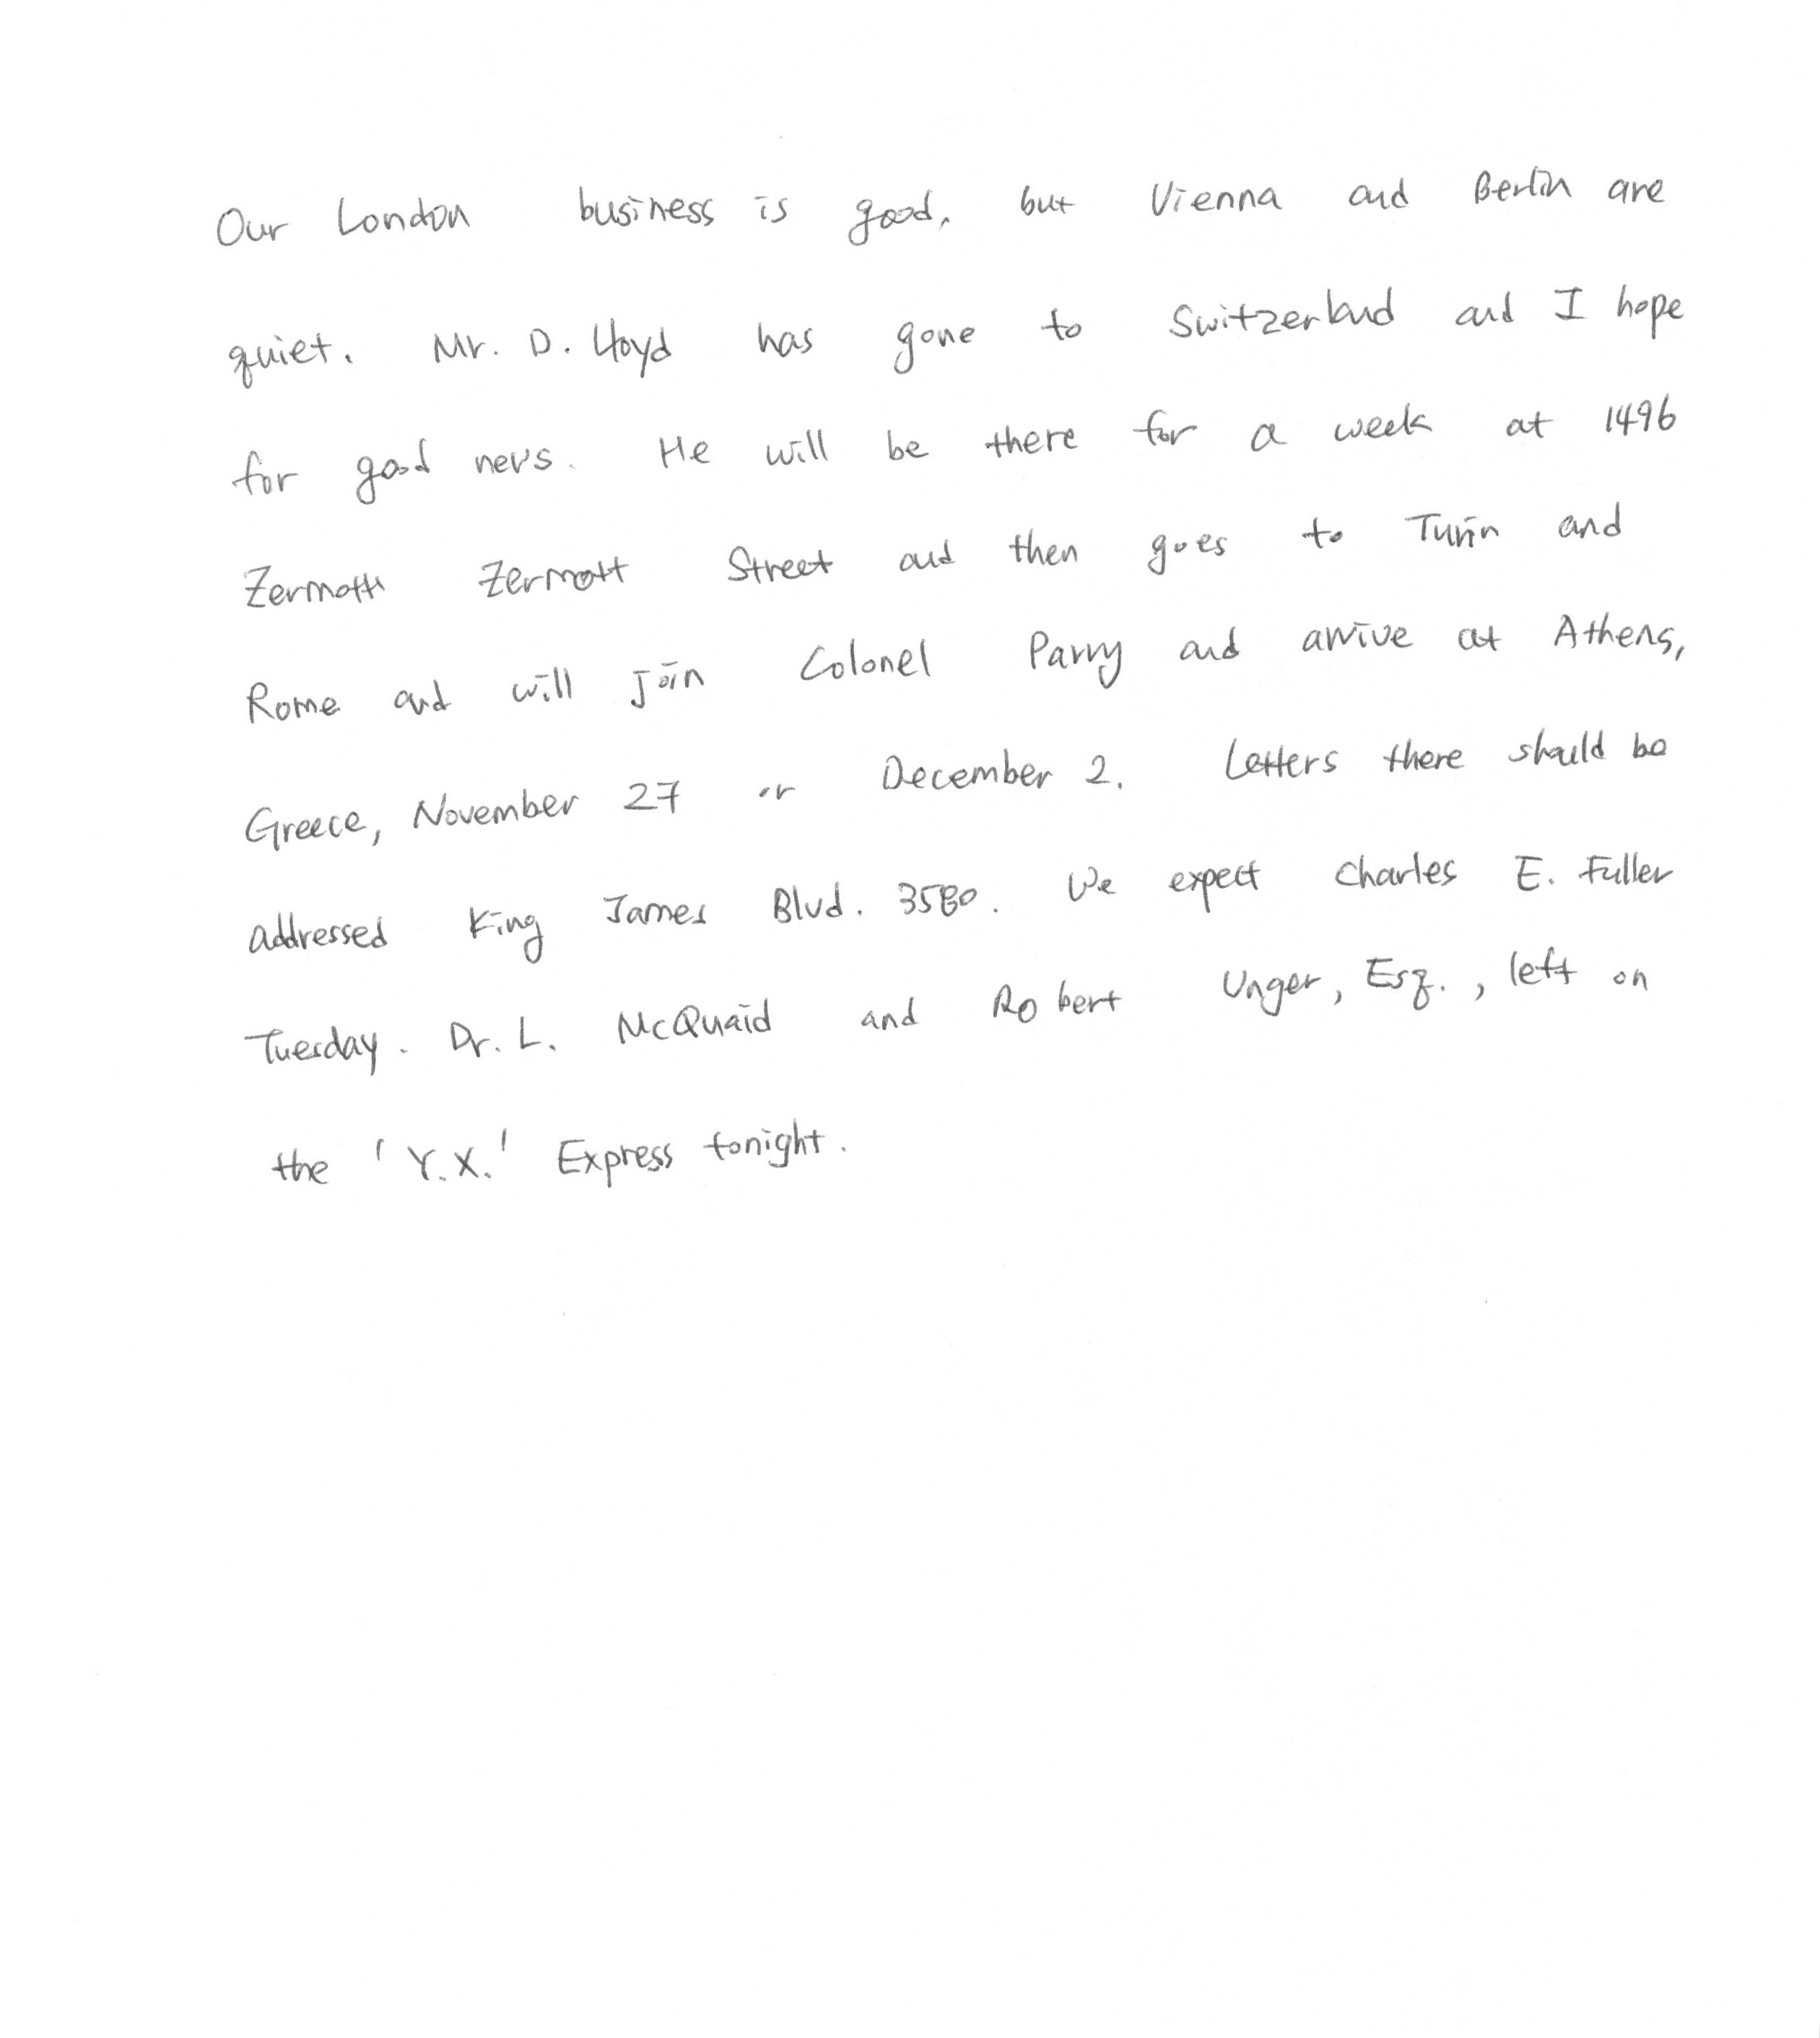 Our London business is good, but Vienna and Berlin are
quiet. Mr. D. Lloyd has gone to Switzerland and I hope
for good news. He will be there for a week at 1496
Zermott Zermott Street and then goes to Turin and
Rome and will join Colonel Parry and arrive at Athens,
Greece, November 27 or December 2. Letters there should be
addressed King James Blvd. 3580. We expect Charles E. Fuller
Tuesday. Dr. L. McQuaid and Robert Unger, Esq., left on
the 'Y.X.' Express tonight.